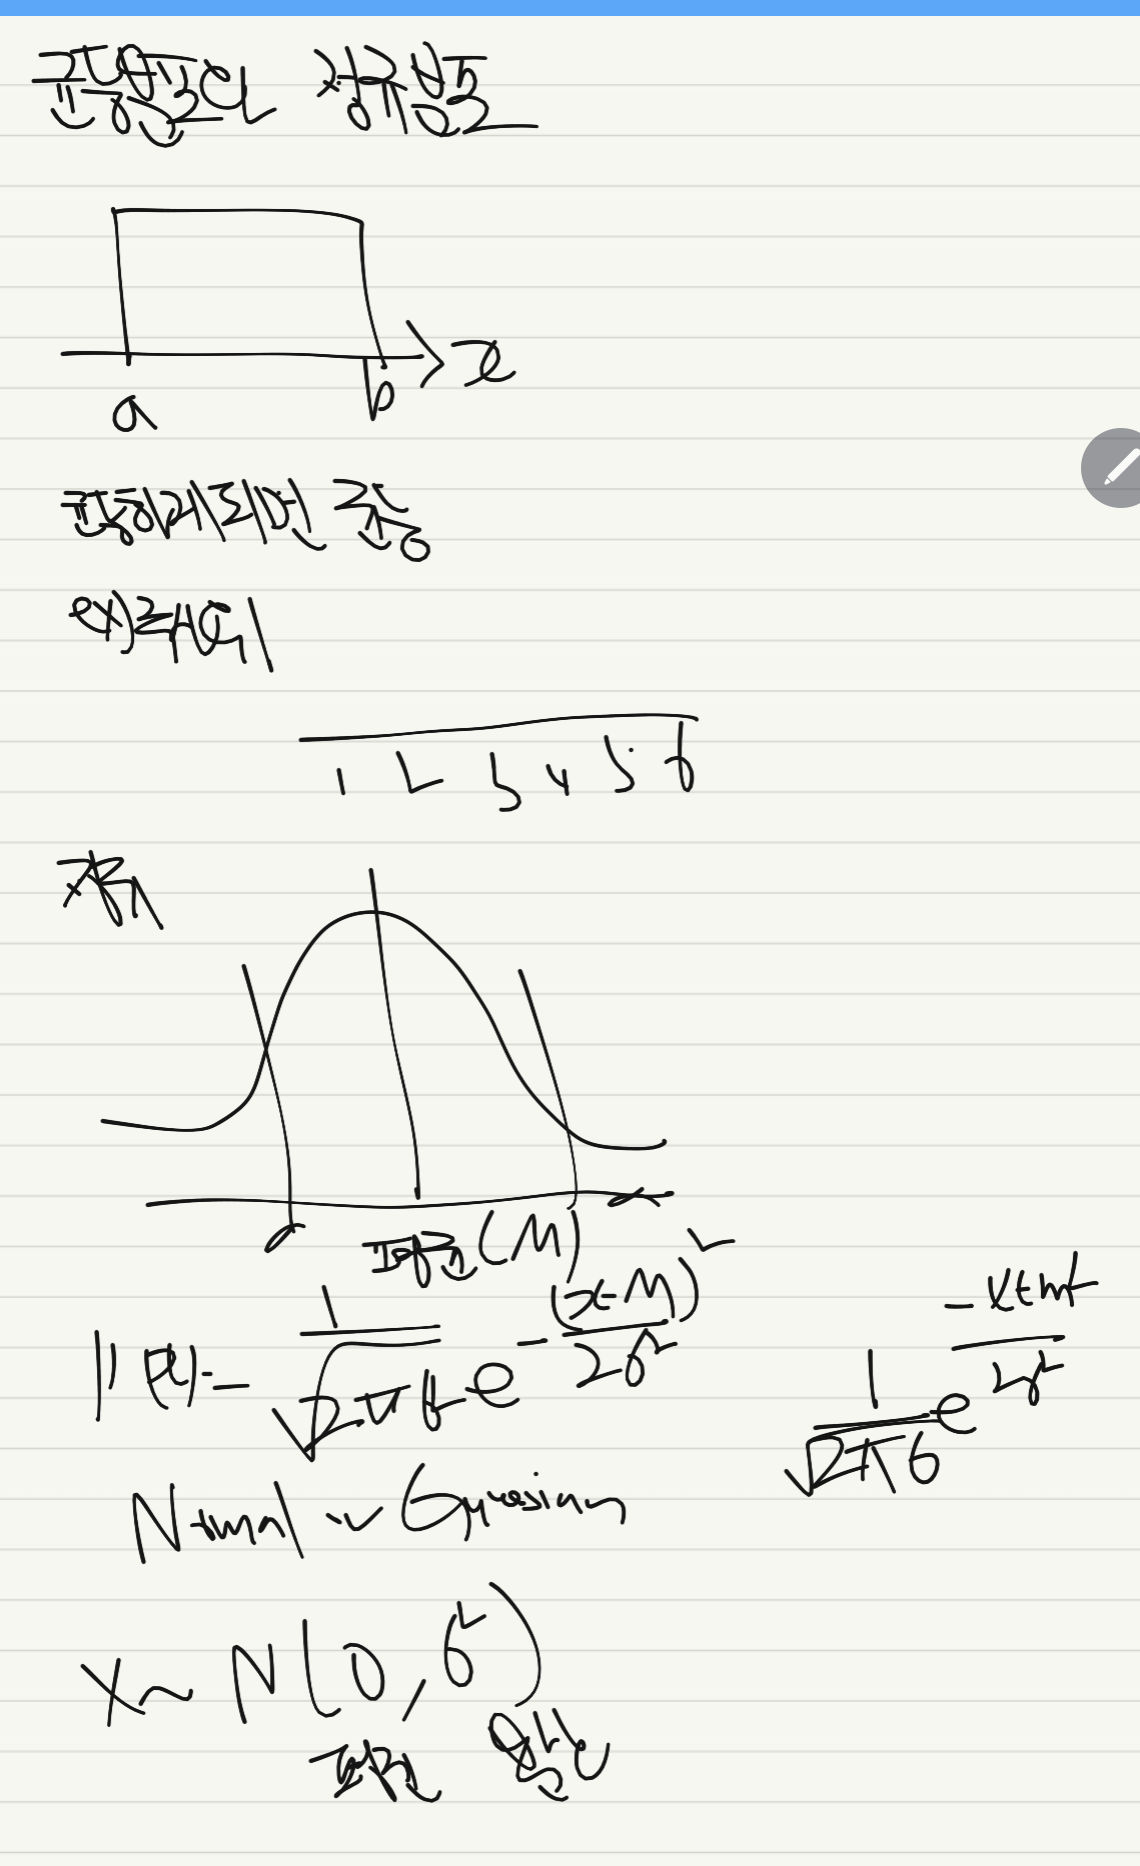 균등분포와 정규분포
x
a b
ex) 주사위
1 2 3 4 5 6
정규
평균 (M)
P(x) = 1 / √2π σ e^ - (x-M)² / 2σ²
1 / √2π σ e
Normal ~ Gaussian
X ~ N(0, σ²)
평균 분산